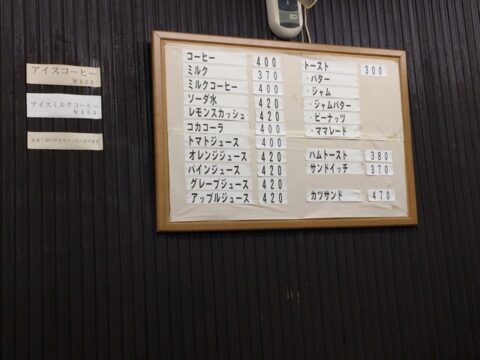 アイスコーヒー
アイスミルクコーヒー
コーヒー 400
ミルク 370
ミルクコーヒー 400
ソーダ水 420
レモンスカッシュ 420
コカコーラ 400
トマトジュース 400
オレンジジュース 420
パインジュース 420
グレープジュース 420
アップルジュース 420
トースト 300
・バター
・ジャム
・ジャムバター
・ピーナッツ
・ママレード
ハムトースト 380
サンドイッチ 370
カツサンド 470